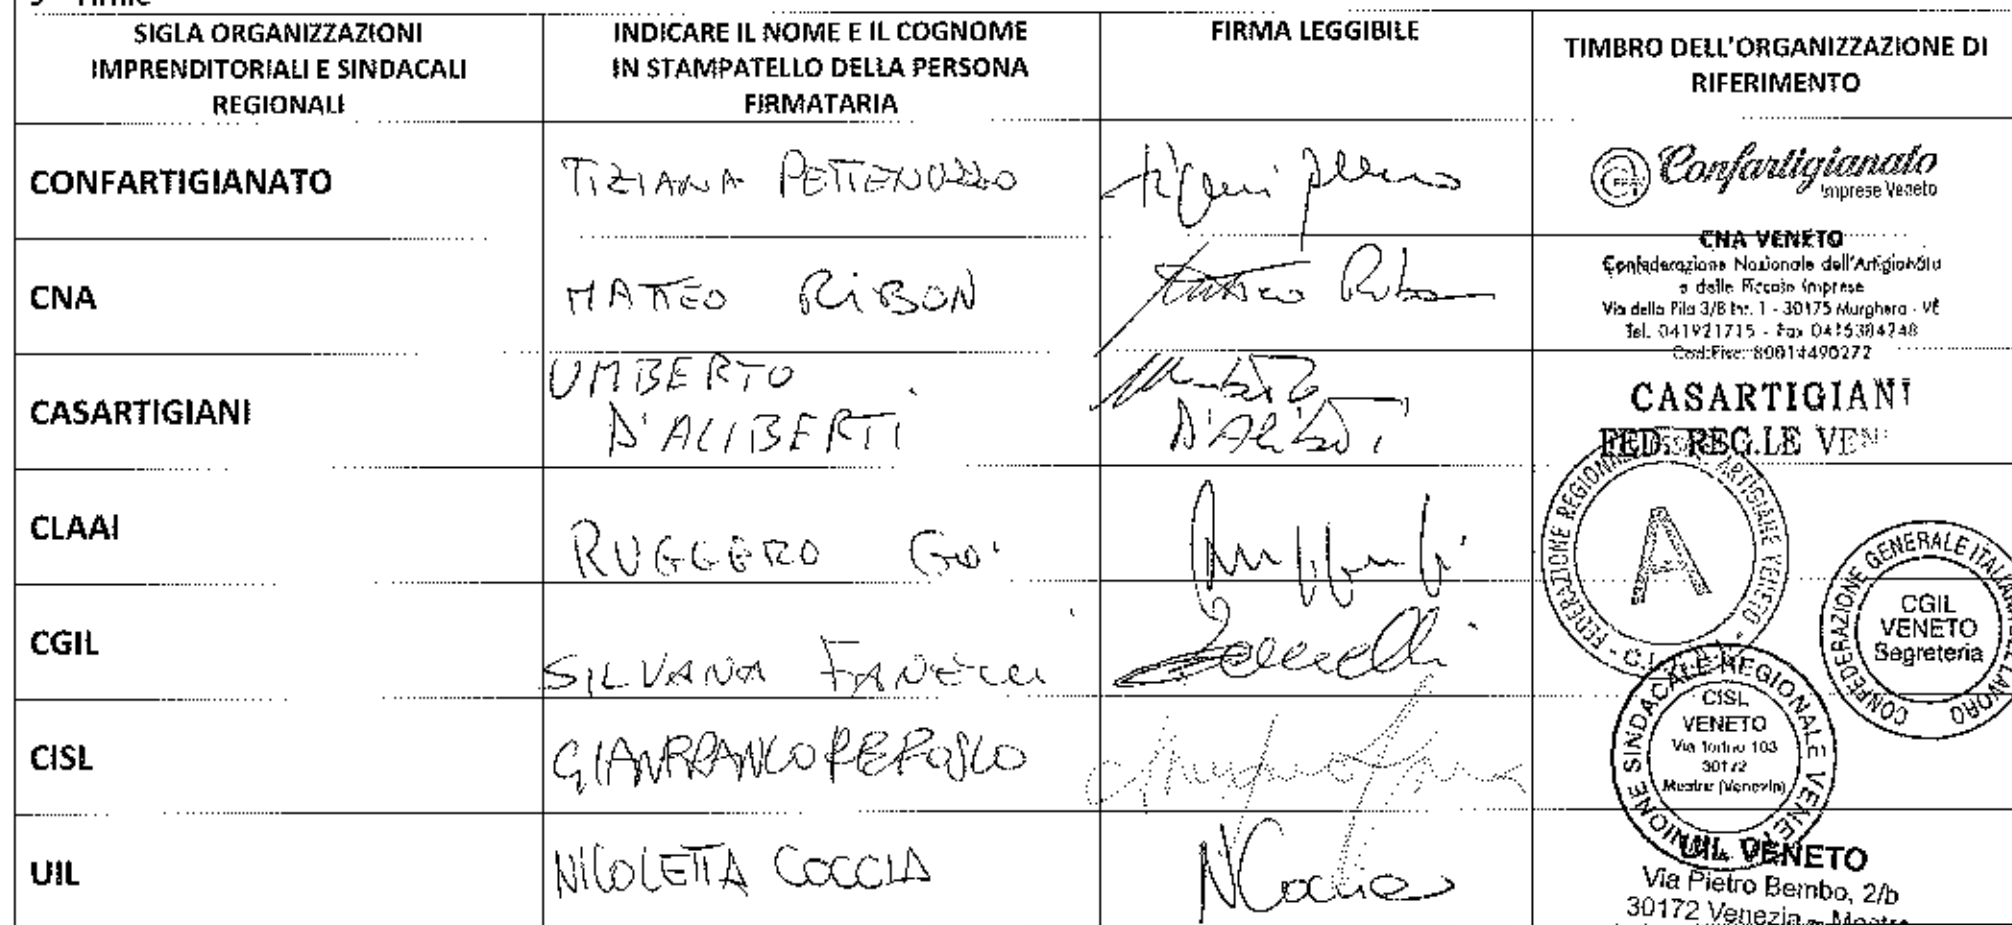 SIGLA ORGANIZZAZIONI
IMPRENDITORIALI E SINDACALI
REGIONALI
INDICARE IL NOME E IL COGNOME
IN STAMPATELLO DELLA PERSONA
FIRMATARIA
FIRMA LEGGIBILE
TIMBRO DELL'ORGANIZZAZIONE DI
RIFERIMENTO
CONFARTIGIANATO
TIZIANA PETTENUZZO
Confartigianato
Imprese Veneto
CNA
MATTEO RIBON
Matteo Ribon
CNA VENETO
Confederazione Nazionale dell'Artigianato
e delle Piccole Imprese
Via della Pila 3/B Int. 1 - 30175 Marghera - VE
Tel. 041921715 - Fax 0415384248
Cod.Fisc. 80014490272
CASARTIGIANI
UMBERTO
D'ALIBERTI
Umberto
D'Aliberti
CASARTIGIANI
FED. REG.LE VEN
CLAAI
RUGGERO GO'
FEDERAZIONE REGIONALE ARTIGIANE VENETO
A
CGIL
SILVANA FANELLI
Fanelli
CONFEDERAZIONE GENERALE ITALIANA LAVORO
CGIL
VENETO
Segreteria
CISL
GIANFRANCO REFOSCO
UNIONE SINDACALE REGIONALE VENETO
CISL
VENETO
Via Torino 103
30172
Mestre (Venezia)
UIL
NICOLETTA COCCIA
N Coccia
UIL VENETO
Via Pietro Bembo, 2/b
30172 Venezia - Mestre